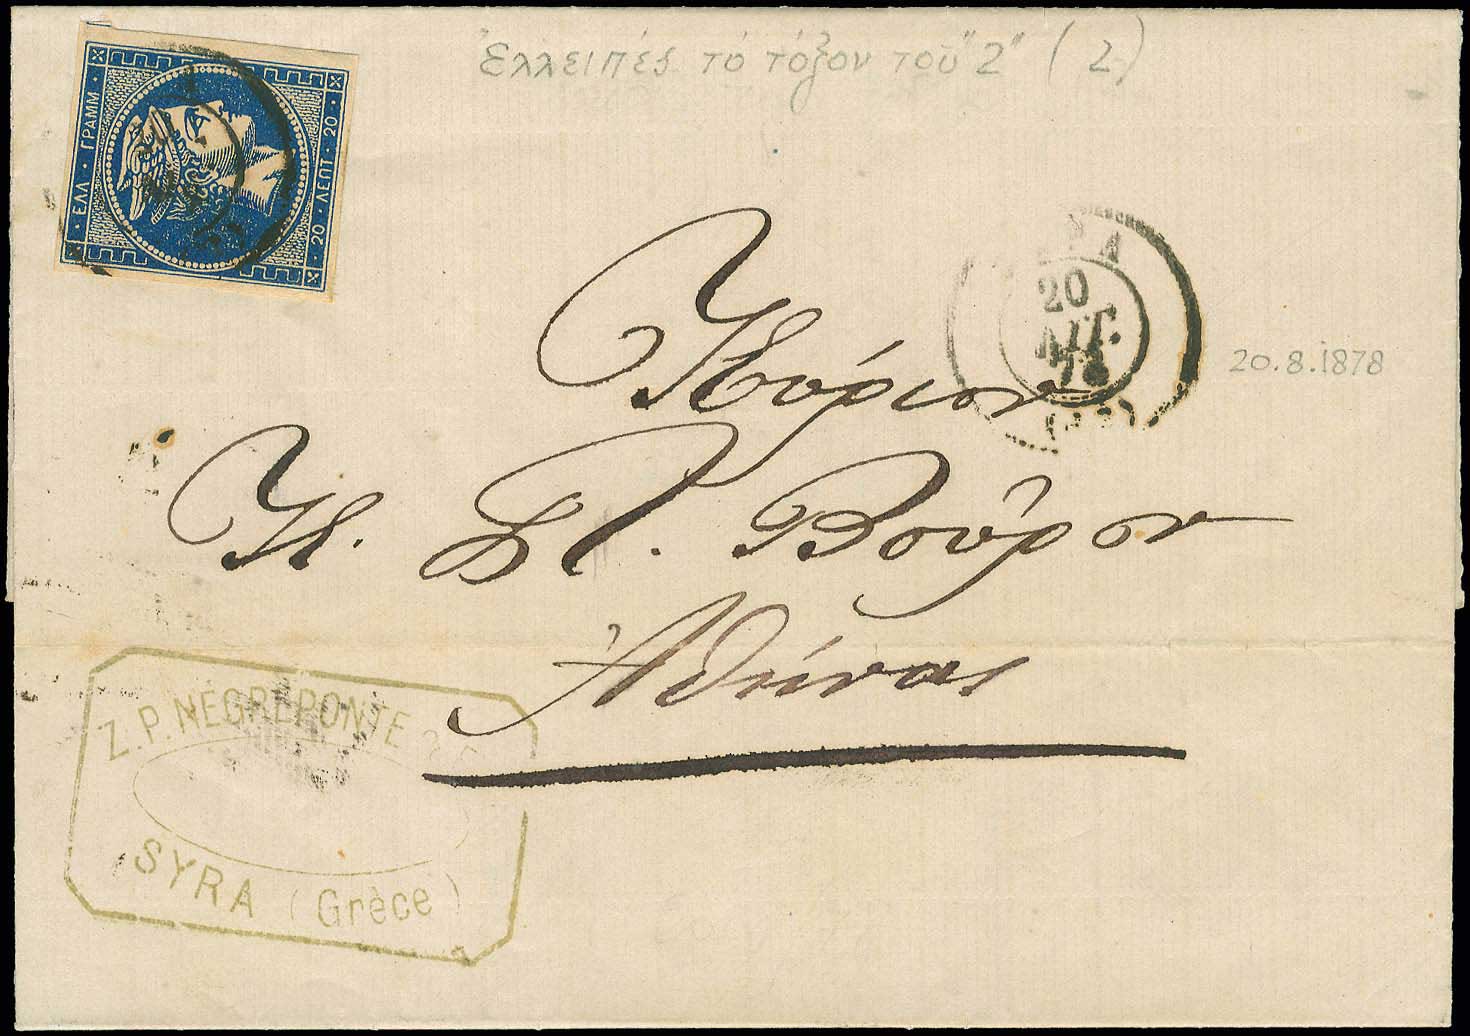 Ἐλλειπές τό τόξον τοῦ "2" (2)
ΕΛΛ · ΓΡΑΜΜ
20 · ΛΕΠΤ · 20
20
ΑΥΓ.
78
20.8.1878
Κύριον
Κ. Στ. Βοῦρον
Ἀθήνας
Z.P. NEGREPONTE
SYRA (Grèce)